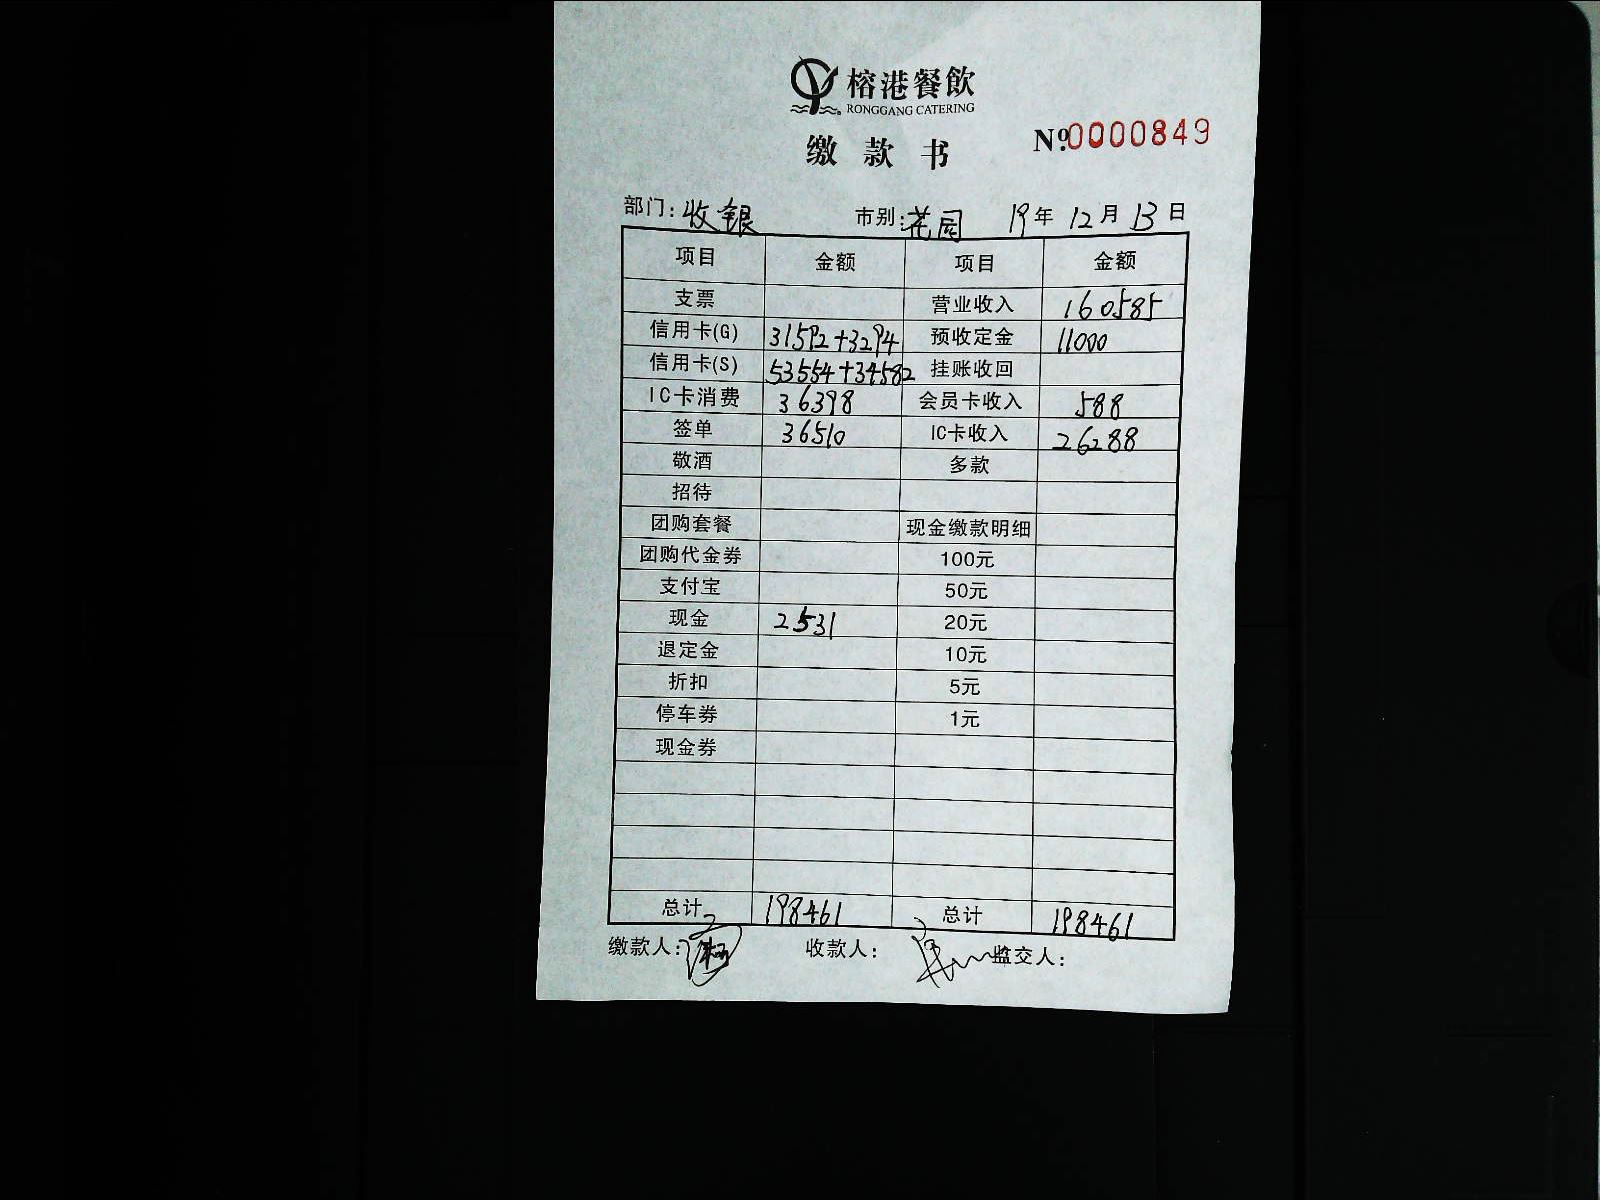 榕港餐飲
RONGGANG CATERING
缴款书 №0000849
部门:收银 市别:花园 19年12月13日
项目 金额 项目 金额
支票 营业收入 160585
信用卡(G) 31592+3294 预收定金 11000
信用卡(S) 53554+34582 挂账收回
IC卡消费 36398 会员卡收入 588
签单 36510 IC卡收入 26288
敬酒 多款
招待
团购套餐 现金缴款明细
团购代金券 100元
支付宝 50元
现金 2531 20元
退定金 10元
折扣 5元
停车券 1元
现金券
总计 198461 总计 198461
缴款人: 收款人: 监交人: